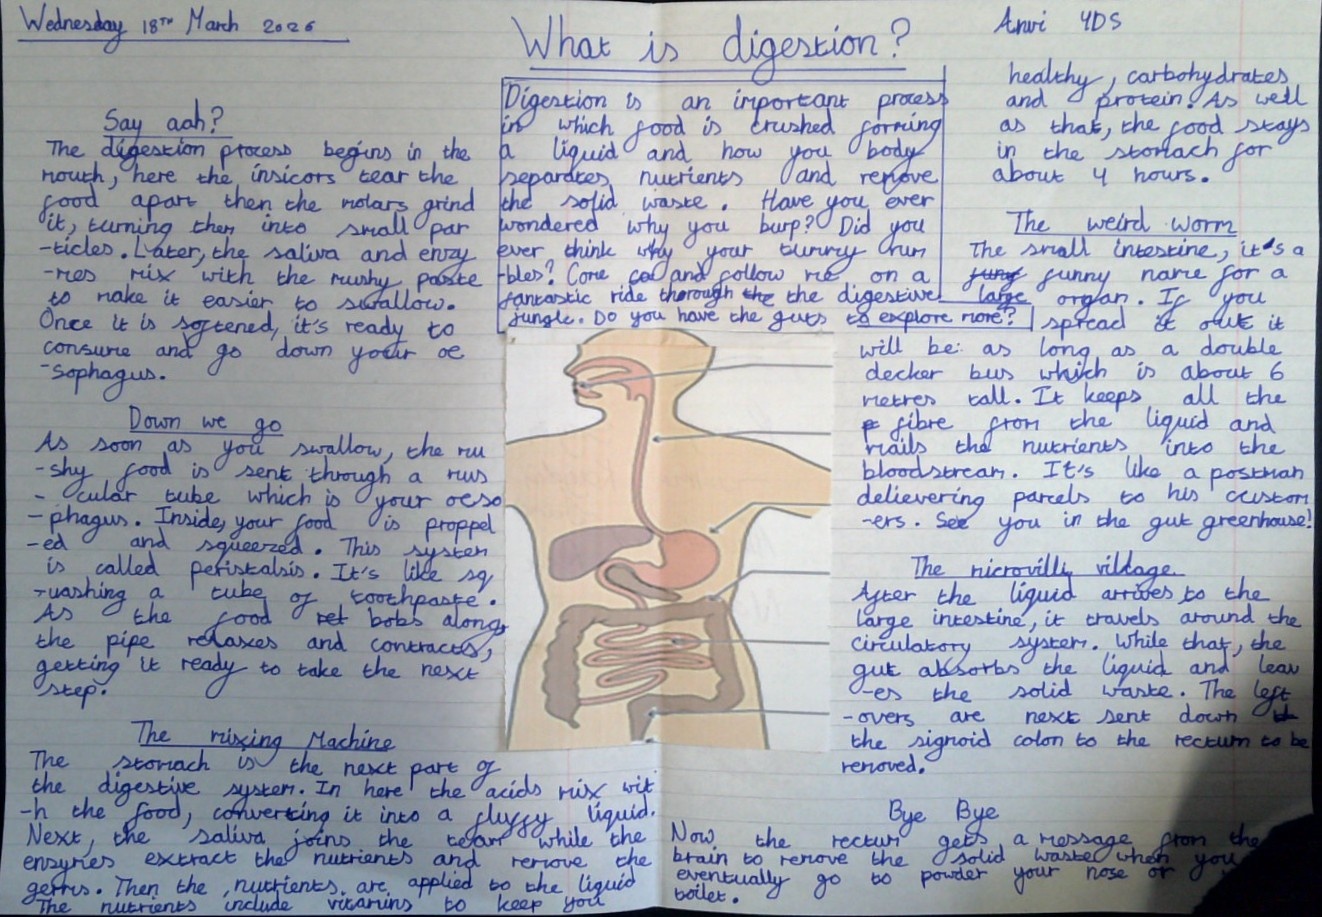 Wednesday 18TH March 2026
What is digestion?
Anvi 4DS
Digestion is an important process
in which food is crushed forming
a liquid and how you body
separates nutrients and remove
the solid waste. Have you ever
wondered why you burp? Did you
ever think why your tummy rum
-bles? Come and follow me on a
fantastic ride thorough the the digestive
jungle. Do you have the guts to explore more?
Say aah?
The digestion process begins in the
mouth, here the insicors tear the
food apart then the molars grind
it, turning them into small par
-ticles. Later, the saliva and enzy
-mes mix with the mushy paste
to make it easier to swallow.
Once it is softened, it's ready to
consume and go down your oe
-sophagus.
Down we go
As soon as you swallow, the mu
-shy food is sent through a mus
- cular tube which is your oeso
-phagus. Inside, your food is proppel
-ed and squeezed. This system
is called peristalsis. It's like sq
-uashing a tube of toothpaste.
As the food bobs along,
the pipe relaxes and contracts,
getting it ready to take the next
step.
The mixing Machine
The stomach is the next part of
the digestive system. In here the acids mix wit
-h the food, converting it into a fluffy liquid.
Next, the saliva joins the team while the
enzymes extract the nutrients and remove the
germs. Then the nutrients are applied to the liquid
The nutrients include vitamins to keep you
healthy, carbohydrates
and protein. As well
as that, the food stays
in the stomach for
about 4 hours.
The weird worm
The small intestine, it's a
funny name for a
large organ. If you
spread it out it
will be as long as a double
decker bus which is about 6
metres tall. It keeps all the
fibre from the liquid and
mails the nutrients into the
bloodstream. It's like a postman
delievering parcels to his custom
-ers. See you in the gut greenhouse!
The microvilli village
After the liquid arrives to the
large intestine, it travels around the
circulatory system. While that, the
gut absorbs the liquid and leav
-es the solid waste. The left
-overs are next sent down
the sigmoid colon to the rectum to be
removed.
Bye Bye
Now, the rectum gets a message from the
brain to remove the solid waste when you
eventually go to powder your nose or
toilet.